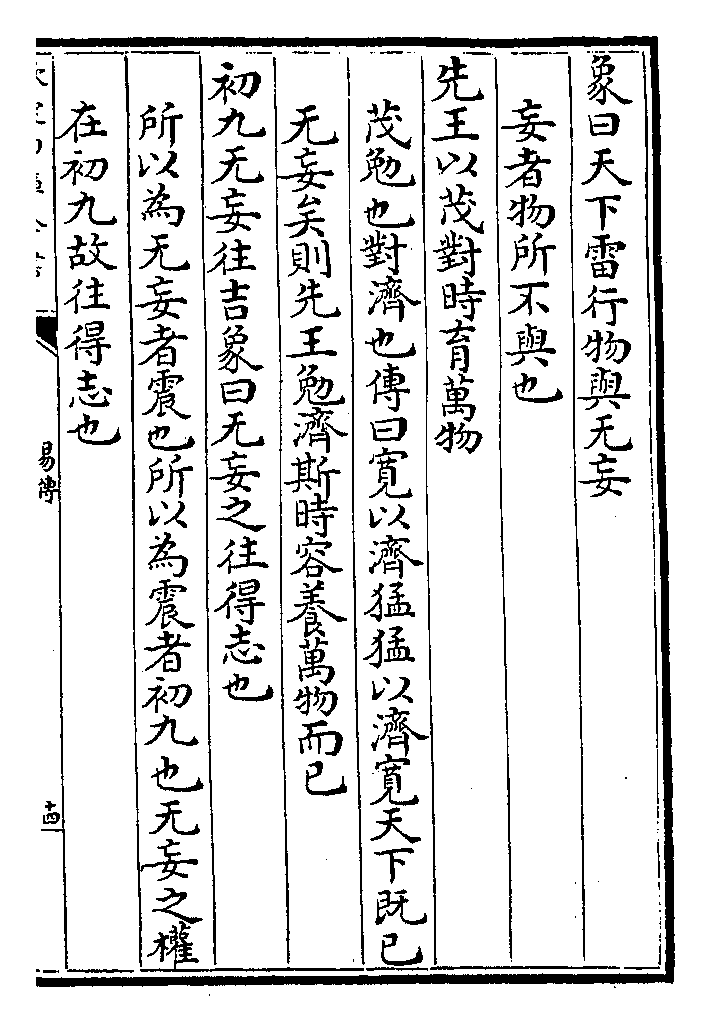 象曰天下雷行物與无妄
妄者物所不與也
先王以茂對時育萬物
茂勉也對濟也傳曰寛以濟猛猛以濟寛天下既已
无妄矣則先王勉濟斯時容養萬物而已
初九无妄往吉象曰无妄之往得志也
所以為无妄者震也所以為震者初九也无妄之權
在初九故往得志也
易傳
十四